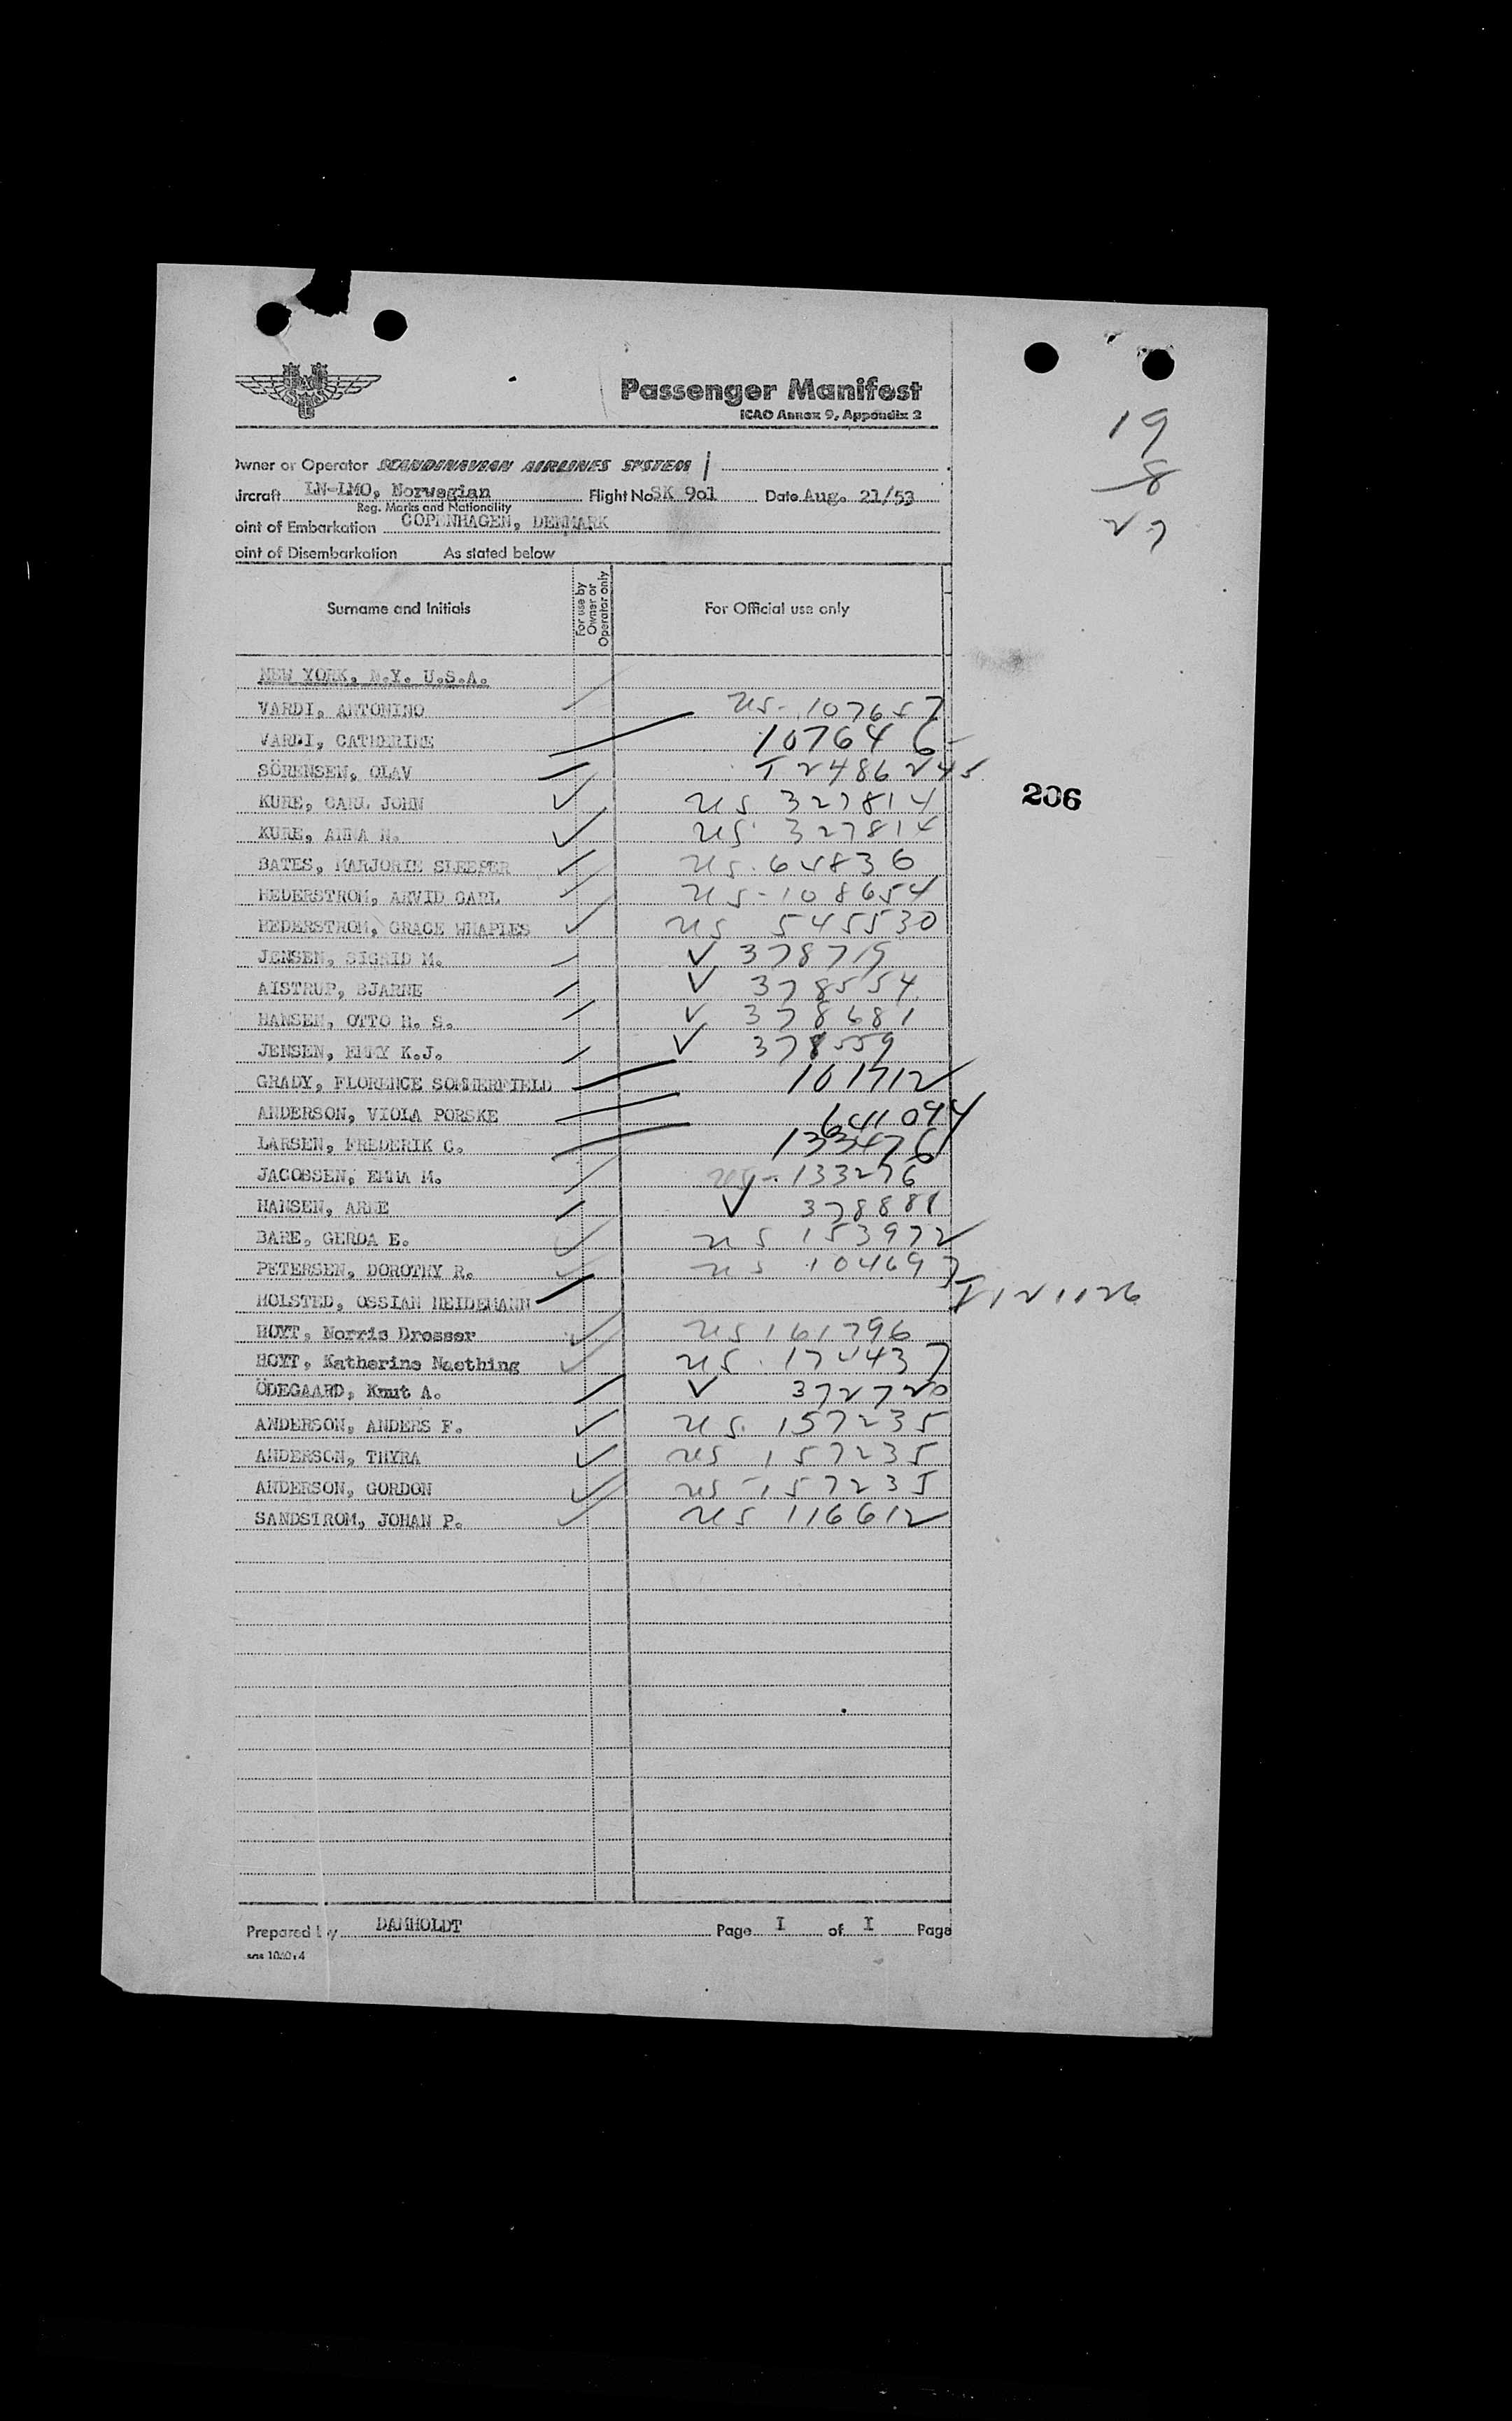 Passenger Manifest
ICAO Annex 9, Appendix 2
19
8
27
Owner or Operator SCANDINAVIAN AIRLINES SYSTEM
ircraft LN-LMO, Norwegian Flight No SK 901 Date Aug. 21/53
Reg. Marks and Nationality
oint of Embarkation COPENHAGEN, DENMARK
oint of Disembarkation As stated below
Surname and Initials For use by Owner or Operator only For Official use only
NEW YORK, N.Y. U.S.A.
VARDI, ANTONINO US-107657
VARDI, CATHERINE 107646
SÖRENSEN, OLAV I 2486245
206
KURE, CARL JOHN US 327814
KURE, ANNA N. US 327814
BATES, MARJORIE SLEEPER US. 62836
HEDERSTROM, ARVID CARL US-108654
HEDERSTROM, GRACE WHAPLES US 545530
JENSEN, SIGRID M. V 378719
AISTRUP, BJARNE V 378554
HANSEN, OTTO H. S. V 378681
JENSEN, EMMY K.J. V 378559
GRADY, FLORENCE SOMMERFIELD 101712
ANDERSON, VIOLA PORSKE 641094
LARSEN, FREDERIK C. 133476
JACOBSEN, EMMA M. US-133276
HANSEN, ARNE V 378888
BARE, GERDA E. US 153972
PETERSEN, DOROTHY R. US 104693
HOLSTED, OSSIAN HEIDEMANN I 121126
HOYT, Norris Dresser US 161796
HOYT, Katherine Naething US. 172437
ÖDEGAARD, Knut A. V 372720
ANDERSON, ANDERS F. US. 157235
ANDERSON, THYRA US 157235
ANDERSON, GORDON US-157235
SANDSTROM, JOHAN P. US 116612
Prepared by DAMHOLDT Page I of I Page